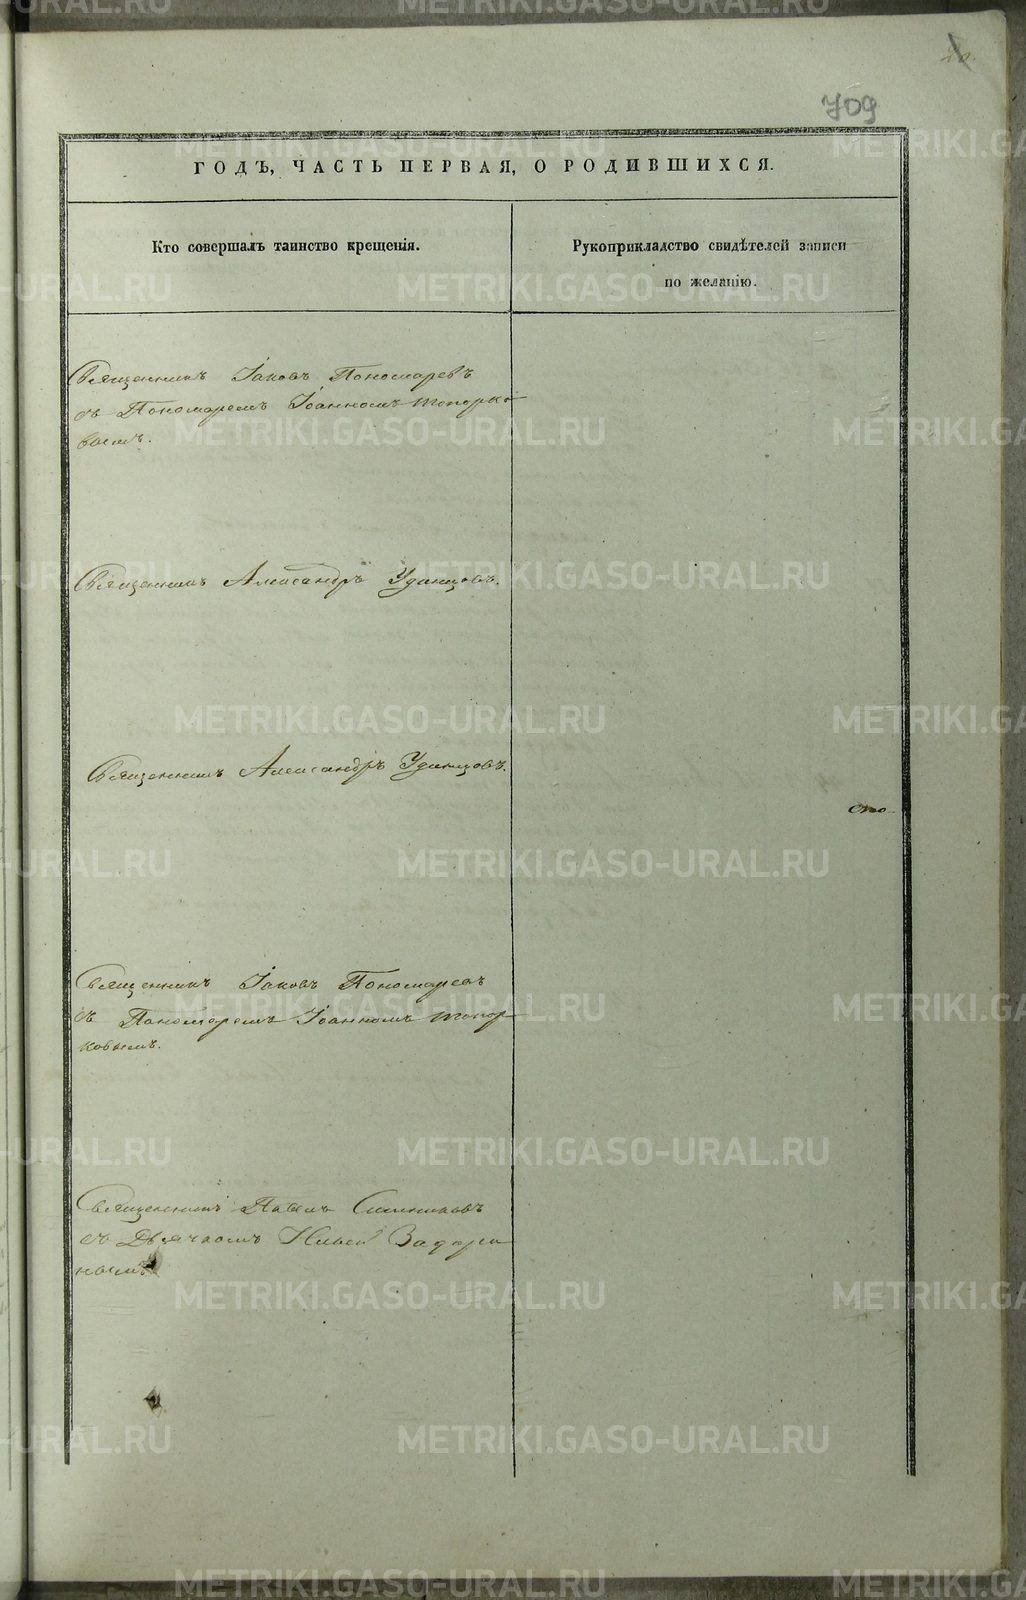 709
ГОДЪ, ЧАСТЬ ПЕРВАЯ, О РОДИВШИХСЯ.
Кто совершалъ таинство крещенія.
Рукоприкладство свидѣтелей записи
по желанію.
Священникъ Іаковъ Пономаревъ
съ Пономаремъ Іоанномъ Топорко
вымъ.
Священникъ Александръ Удинцовъ.
Священникъ Александръ Удинцовъ.
Священникъ Іаковъ Пономаревъ
съ Пономаремъ Іоанномъ Топор
ковымъ.
Священникъ Павелъ
съ Дьячкомъ Ильей Задори
нымъ
METRIKI.GASO-URAL.RU